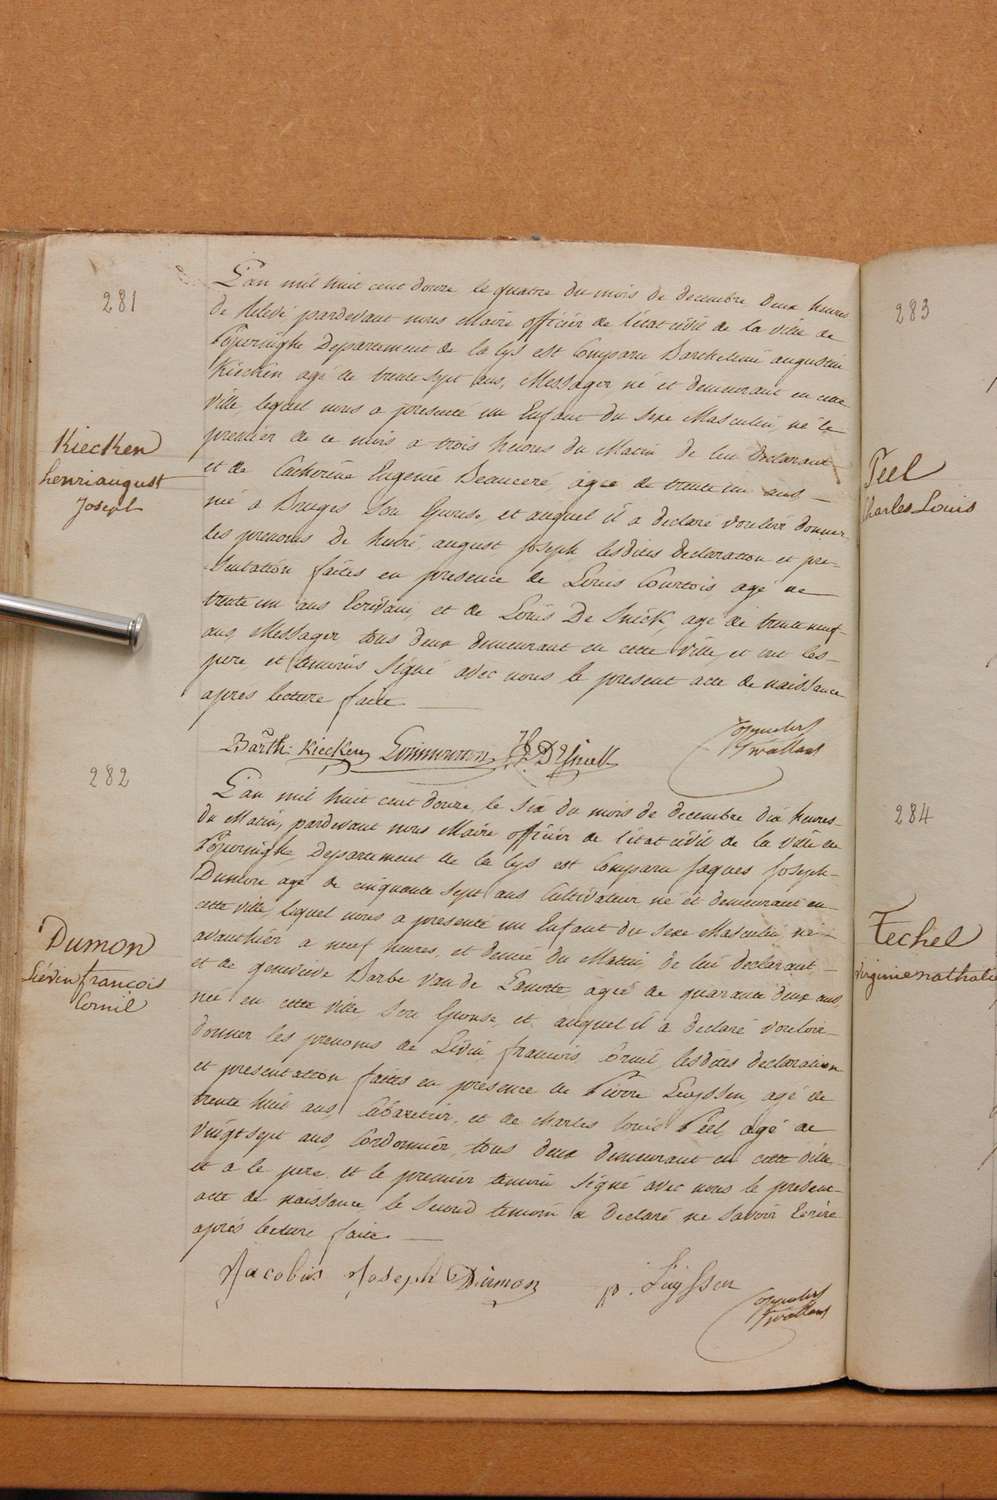 281
L'an mil huit cent douze le quatre du mois de decembre deux heures
de Relevé pardevant nous Maire officier de l'etat civil de la ville de
Poperinghe Departement de la Lys est Comparu Barthelemi augustin
Kiecken agé de trente sept ans, Messager né et demeurant en cette
ville, lequel nous a presenté un Enfant du sexe Masculin, né le
premier de ce mois a trois heures du Matin de lui Declarant
Kiecken
henri august
Joseph
et de Catherine Eugenie agée de trente un ans
née a Bruges son Epouse, et auquel il a declaré vouloir donner
les prenoms de henri, august Joseph lesdites declaration et pre-
sentation faites en presence de Louis Courtois agé de
trente un ans Ecrivain, et de Louis De Snick, agé de trente neuf
ans, Messager tous deux demeurant en cette ville, et ont les
pere et temoins signé avec nous le present acte de naissance
après lecture faite
Barth: Kiecken
282
L'an mil huit cent douze, le six du mois de decembre dix heures
du Matin, pardevant nous Maire officier de l'etat civil de la ville de
Poperinghe Departement de la Lys est Comparu Jaques Joseph
Dumon agé de cinquante sept ans Cultivateur né et demeurant en
cette ville, lequel nous a presenté un Enfant du sexe Masculin né
avanthier a neuf heures, et demie du Matin de lui declarant
Dumon
Liévin françois
Cornil
et de Genevieve Barbe Van de Lanotte agée de quarante deux ans
née en cette ville son Epouse, et auquel il a declaré vouloir
donner les prenoms de Liévin françois Cornil, lesdites declaration
et presentation faites en presence de Pierre Luyssen, agé de
trente huit ans Cabaretier, et de Charles Louis Péel agé de
vingt sept ans, Cordonnier, tous deux demeurant en cette ville
et a le pere, et le premier temoin signé avec nous le present
acte de naissance, le second temoin a declaré ne savoir Ecrire
après lecture faite
Jacobus Joseph Dumon
p. Luyssen
283
Péel
Charles Louis
284
Techel
Virginie nathalie